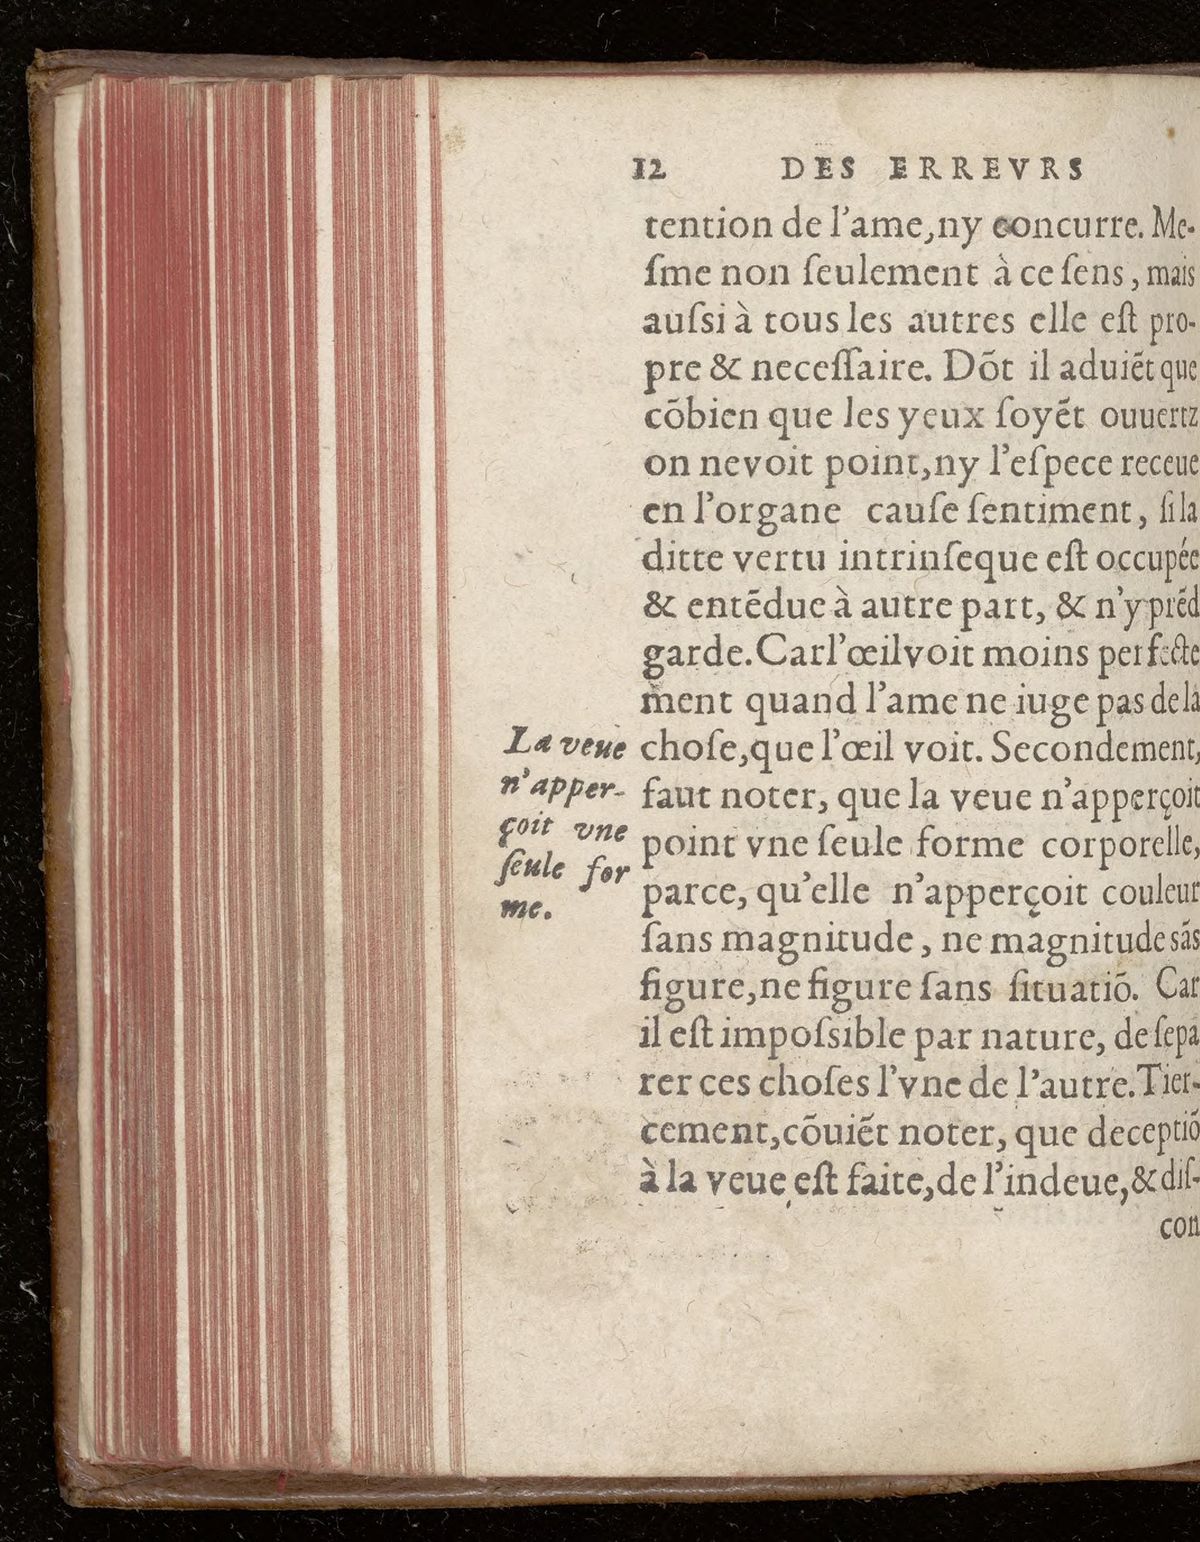 12 DES ERREVRS
tention de l'ame, ny concurre. Me-
ſme non ſeulement à ce ſens, mais
auſsi à tous les autres elle eſt pro-
pre & neceſſaire. Dõt il aduiẽt que
cõbien que les yeux ſoyẽt ouuertz
on ne voit point, ny l'eſpece receue
en l'organe cauſe ſentiment, ſi la
ditte vertu intrinſeque eſt occupée
& entẽdue à autre part, & n'y prẽd
garde. Car l'œil voit moins perfecte
ment quand l'ame ne iuge pas de la
choſe, que l'œil voit. Secondement,
faut noter, que la veue n'apperçoit
point vne ſeule forme corporelle,
parce, qu'elle n'apperçoit couleur
ſans magnitude, ne magnitude sãs
figure, ne figure ſans ſituatiõ. Car
il eſt impoſsible par nature, de ſepa
rer ces choſes l'vne de l'autre. Tier-
cement, cõuiẽt noter, que deceptiõ
à la veue eſt faite, de l'indeue, & diſ-
con
La veue
n'apper-
çoit vne
ſeule for
me.